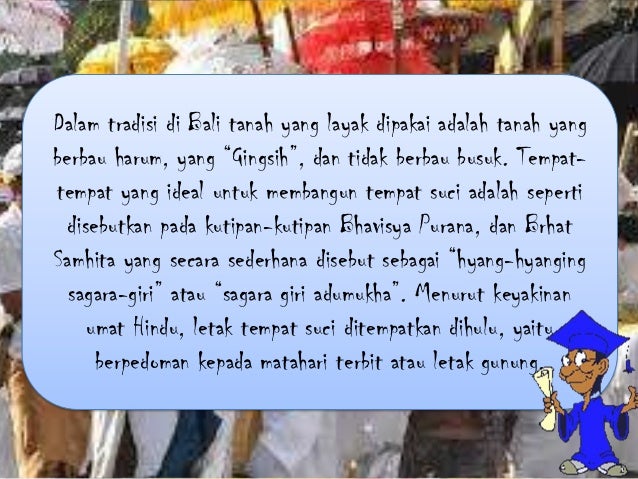 Dalam tradisi di Bali tanah yang layak dipakai adalah tanah yang
berbau harum, yang “Gingsih”, dan tidak berbau busuk. Tempat-
tempat yang ideal untuk membangun tempat suci adalah seperti
disebutkan pada kutipan-kutipan Bhavisya Purana, dan Brhat
Samhita yang secara sederhana disebut sebagai “hyang-hyanging
sagara-giri” atau “sagara giri adumukha”. Menurut keyakinan
umat Hindu, letak tempat suci ditempatkan dihulu, yaitu
berpedoman kepada matahari terbit atau letak gunung.